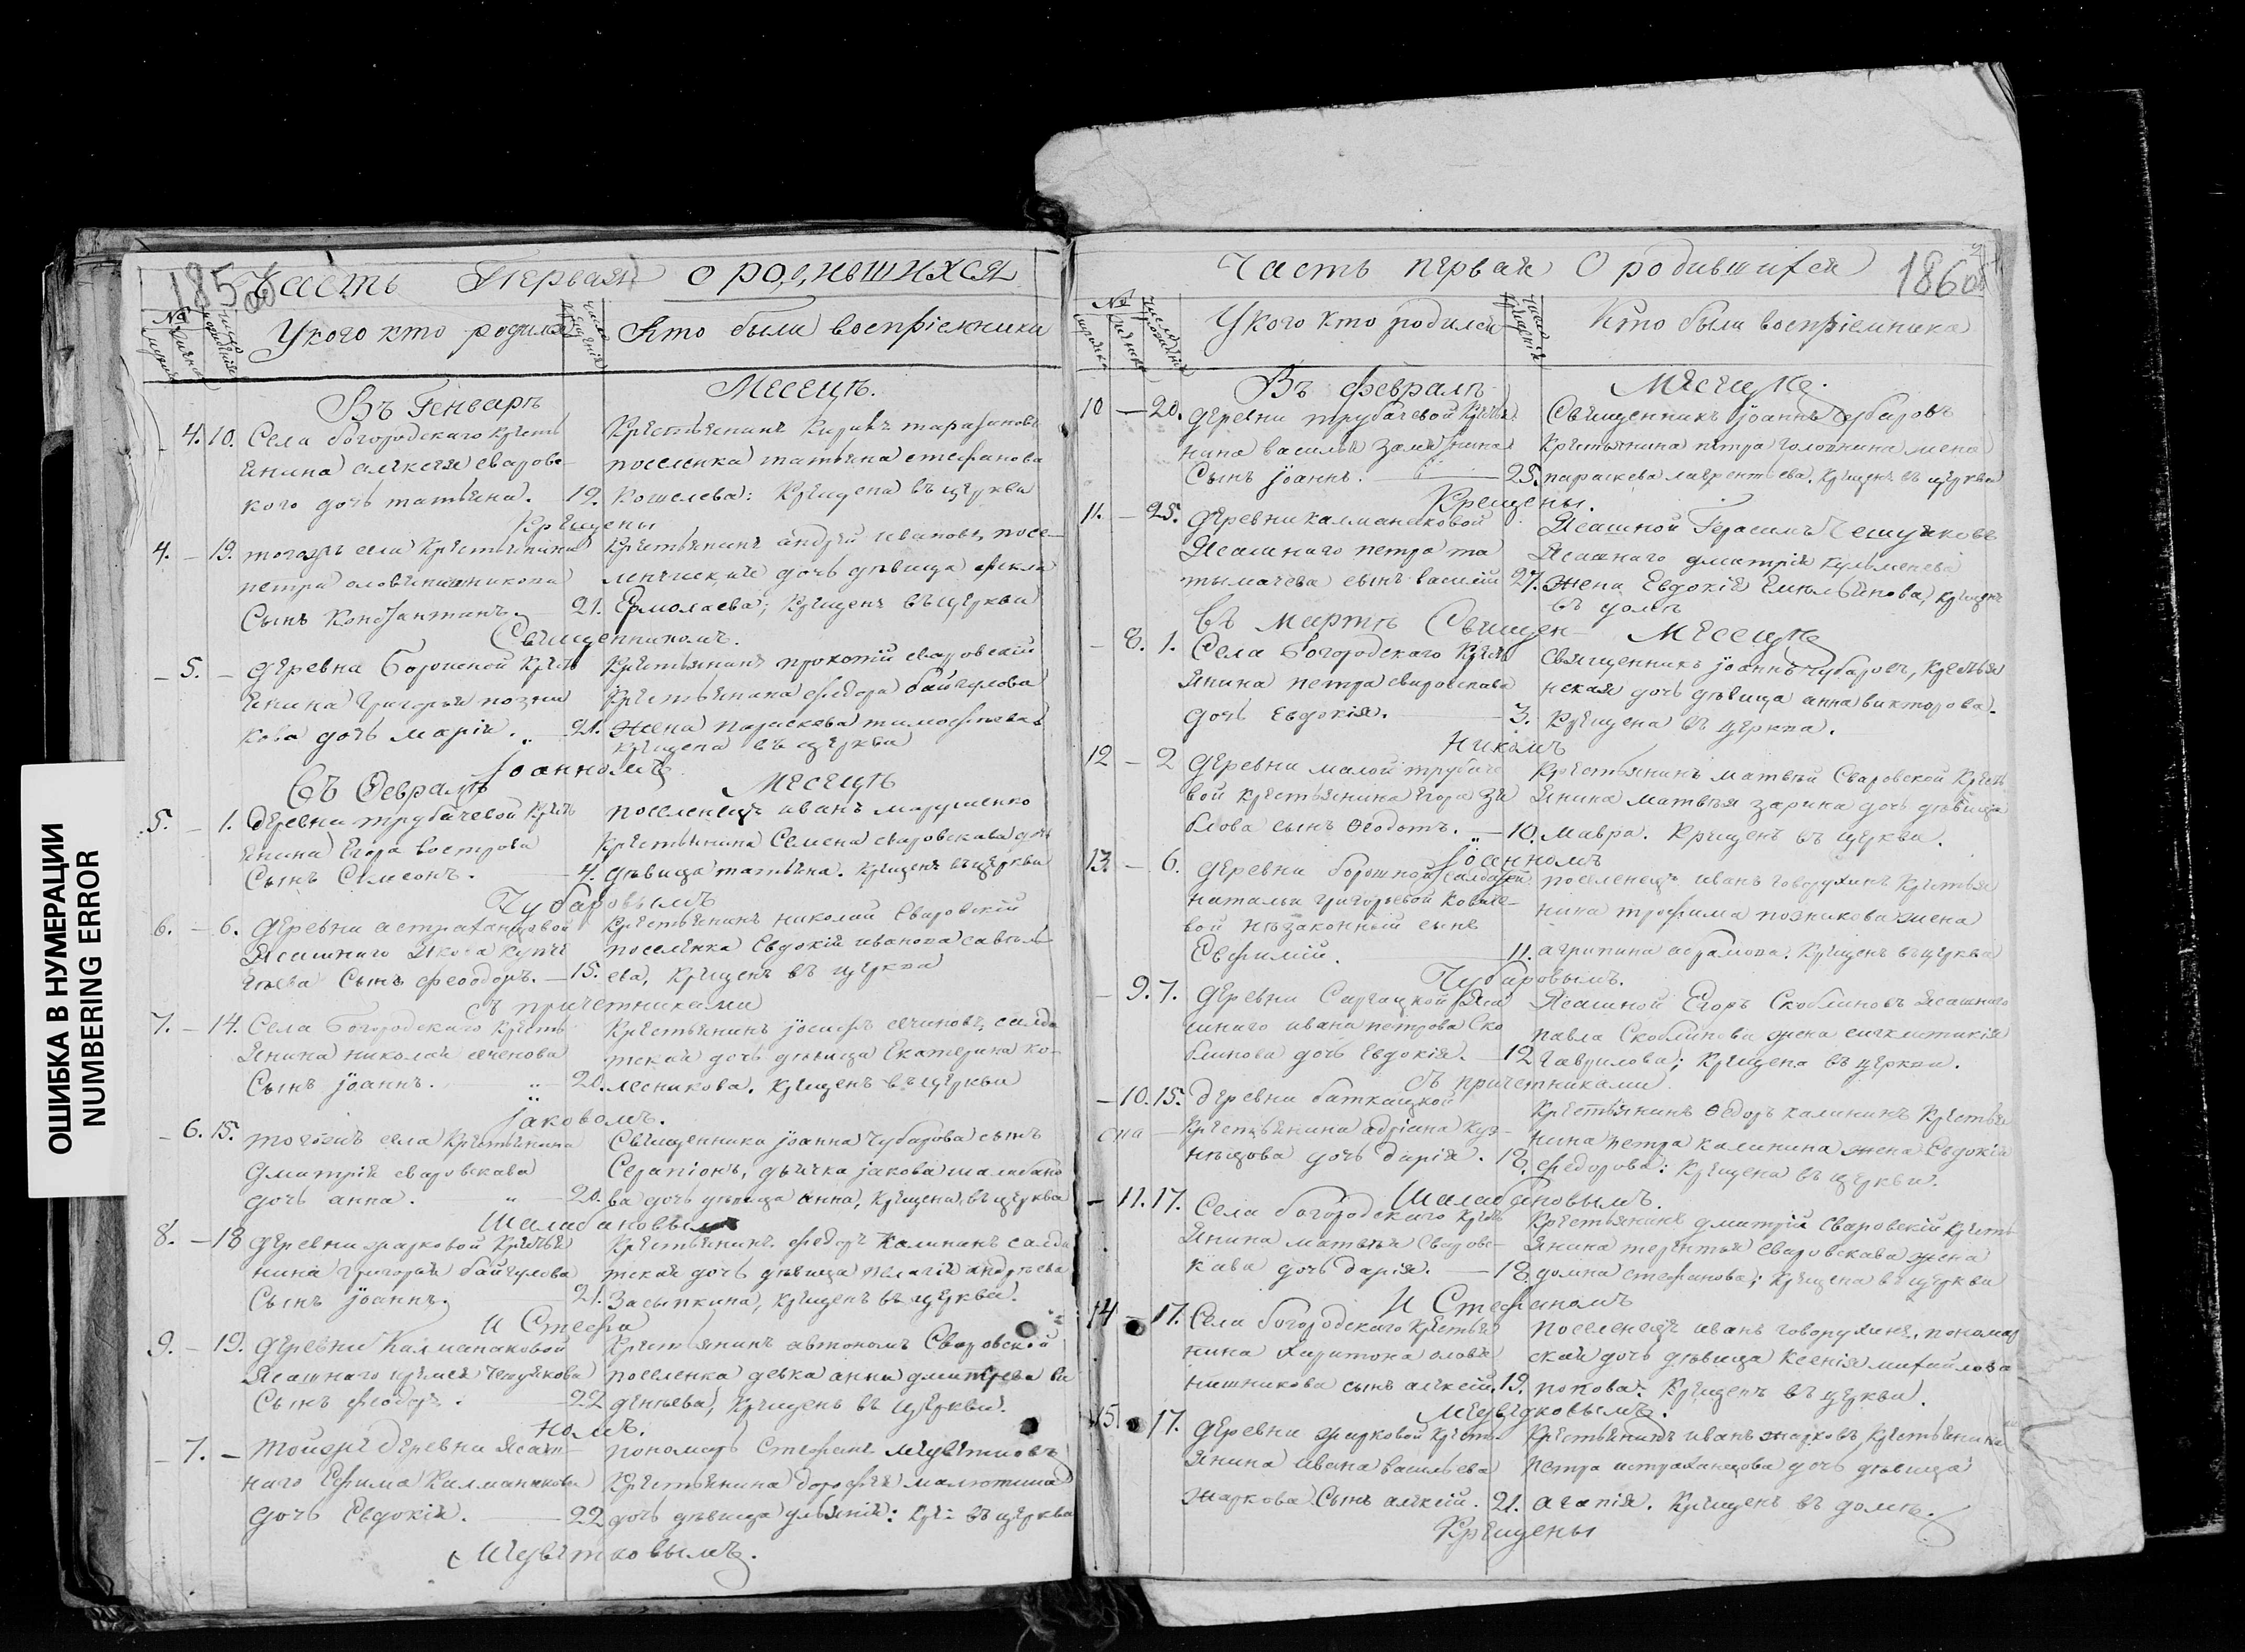 ОШИБКА В НУМЕРАЦИИ
NUMBERING ERROR
185 об
Часть Первая о родившихся
№ мужска женска
число рождения
У кого кто родился
число крещения
Кто были восприемники
Въ Генваръ Месецъ.
4. 10. Села богородскаго крестъ
янина алексея сваровс
кого дочь татьяна. 12.
Крестьянинъ Кирилъ тарасановъ
поселенка татьяна стефанова
Кошелева: Крещена въ церкви
Крещены
4. – 19. тогожъ села Крестьянина
петра оловянишникова
Сынъ Константинъ. 21.
Крестьянинъ андрей ивановъ, посе–
ленческая дочь девица фекла
Ермолаева; Крещенъ въ церкви
Священникомъ.
– 5. – деревни Борошной крестъ
янина григорья позни
кова дочь марія. 21.
Крестьянинъ прокопій сваровскій
Крестьянина федора байгулова
жена параскева тимофеева
крещена въ церкви
Іоанномъ
Въ Февралъ месецъ
5. – 1. деревни трубачевой крестъ
янина Егора вострова
Сынъ Симеонъ. – 4.
поселенецъ иванъ марущенко
Крестьянина Семена сваровскава дочь
девица татьяна. Крещенъ въ церкви
Чубаровымъ
6. – 6. деревни астраханцовой
Ясашнаго Якова купче
енева Сынъ феодоръ. – 15.
Крестьянинъ николай Сваровскій
поселенка Евдокія иванова савель
ева, Крещенъ въ церкви
съ причетниками
7. – 14. Села Богородскаго кресть
янина николая ченова
Сынъ Іоаннъ. 20.
Крестьянинъ Іосифъ, салда
тская дочь девица Екатерина ко–
лесникова. Крещенъ въ церкви
Іаковомъ.
– 6. 15. тогожъ села Крестьянина
Дмитрія сваровскава
дочь анна. 20.
Священника Іоанна Чубарова сынъ
Серапіонъ, дьячка Іакова шалабано
ва дочь девица анна, Крещена, въ церкви
Шалабановымъ
8. – 18 деревни жарковой крестья
нина григорья байгулова
Сынъ Іоаннъ. 21.
Крестьянинъ федоръ Калининъ салда
тская дочь девица пелагія андреева
Засыпкина, Крещенъ въ церкви.
И Стефа
9. – 19. деревни Калмаковой
Ясашнаго Чешуякова
Сынъ феодоръ. – 22
Крестьянинъ автономъ Сваровской
поселенка девка анна дмитрева ва
деньева, Крещенъ въ церкви.
номъ.
– 7. – тойже деревни ясаш–
наго Ефима Калманакова
дочь Евдокія. 22
пономарь Стефанъ медветковъ
Крестьянина дорофея малютина
дочь девица ульянія: Кре= въ церкви
Медветковымъ.
Часть первая О родившихся
186
№ мужска женска
число рожденія
У кого кто родился
число крещенія
Кто были восприемники
Въ февралъ Месецъ.
10 – 20. деревни трубачевой крестья
нина василья замятнина
Сынъ Іоаннъ. 25.
Священникъ Іоаннъ Чубаровъ
крестьянина петра головнина жена
параскева лаврентьева. Крещенъ въ церкви
Крещены.
11. – 25. деревни калманаковой
Ясашнаго петра та
тымачева сынъ василій 27.
Ясашной Герасимъ Чешуяковъ
Ясашнаго дмитрія кульменева
жена Евдокія Емельянова, крещенъ
въ доме
Въ Мартъ Священ– Месецъ
– 8. 1. Села Богородскаго кресть
янина петра сваровскава
дочь Евдокія. 3.
Священникъ Іоаннъ Чубаровъ, крестья
нская дочь девица анна викторова.
Крещена въ церкви.
никомъ
12 – 2 деревни малой трубаче
вой крестьянина Егора зы
блова сынъ Феодотъ. – 10.
Крестьянинъ матвей Сваровской кресть
янина матвея зарина дочь девица
мавра. Крещенъ въ церкви.
Іоанномъ
13. – 6. деревни борошной салдатки
натальи григорьевой ковале–
вой незаконный сынъ
Евфимій. 11.
поселенецъ иванъ говорухинъ крестья
нина трофима позникова жена
агрипина абрамова. Крещенъ въ церкви
Чубаровымъ.
– 9. 7. деревни Саргацкой Яса
шнаго ивана петрова Ско
блинова дочь Евдокія. – 12
Ясашной Егоръ Скоблиновъ Ясашнаго
павла Скоблинова жена
гаврилова; Крещена въ церкви.
съ причетниками
– 10. 15. деревни баткацкой
Крестьянина адріана куз–
нецова дочь дарія. 18.
Крестьянинъ Федоръ калининъ Крестья
нина петра калинина жена Евдокія
федорова: Крещена въ церкви.
Шалабановымъ.
– 11. 17. Села богородскаго кресть
янина матвея Сваровс–
кава дочь дарія. – 18.
Крестьянинъ дмитрій Сваровскій кресть
янина терентья Сваровскава жена
домна стефанова; крещена въ церкви
И Стефаномъ
14 – 17. Села богородскаго крестья
нина харитона оловя
нишникова сынъ алексей. 19.
поселенецъ иванъ говорухинъ, пономар
ская дочь девица ксенія михайлова
попова. Крещенъ въ церкви.
Медведковымъ.
15. 17. деревни жарковой кресть–
янина ивана васильева
жаркова. Сынъ алексей. 21.
Крестьянинъ иванъ жарковъ, крестьянина
петра астраханцова дочь девица
агапія. Крещенъ въ доме.
Крещены